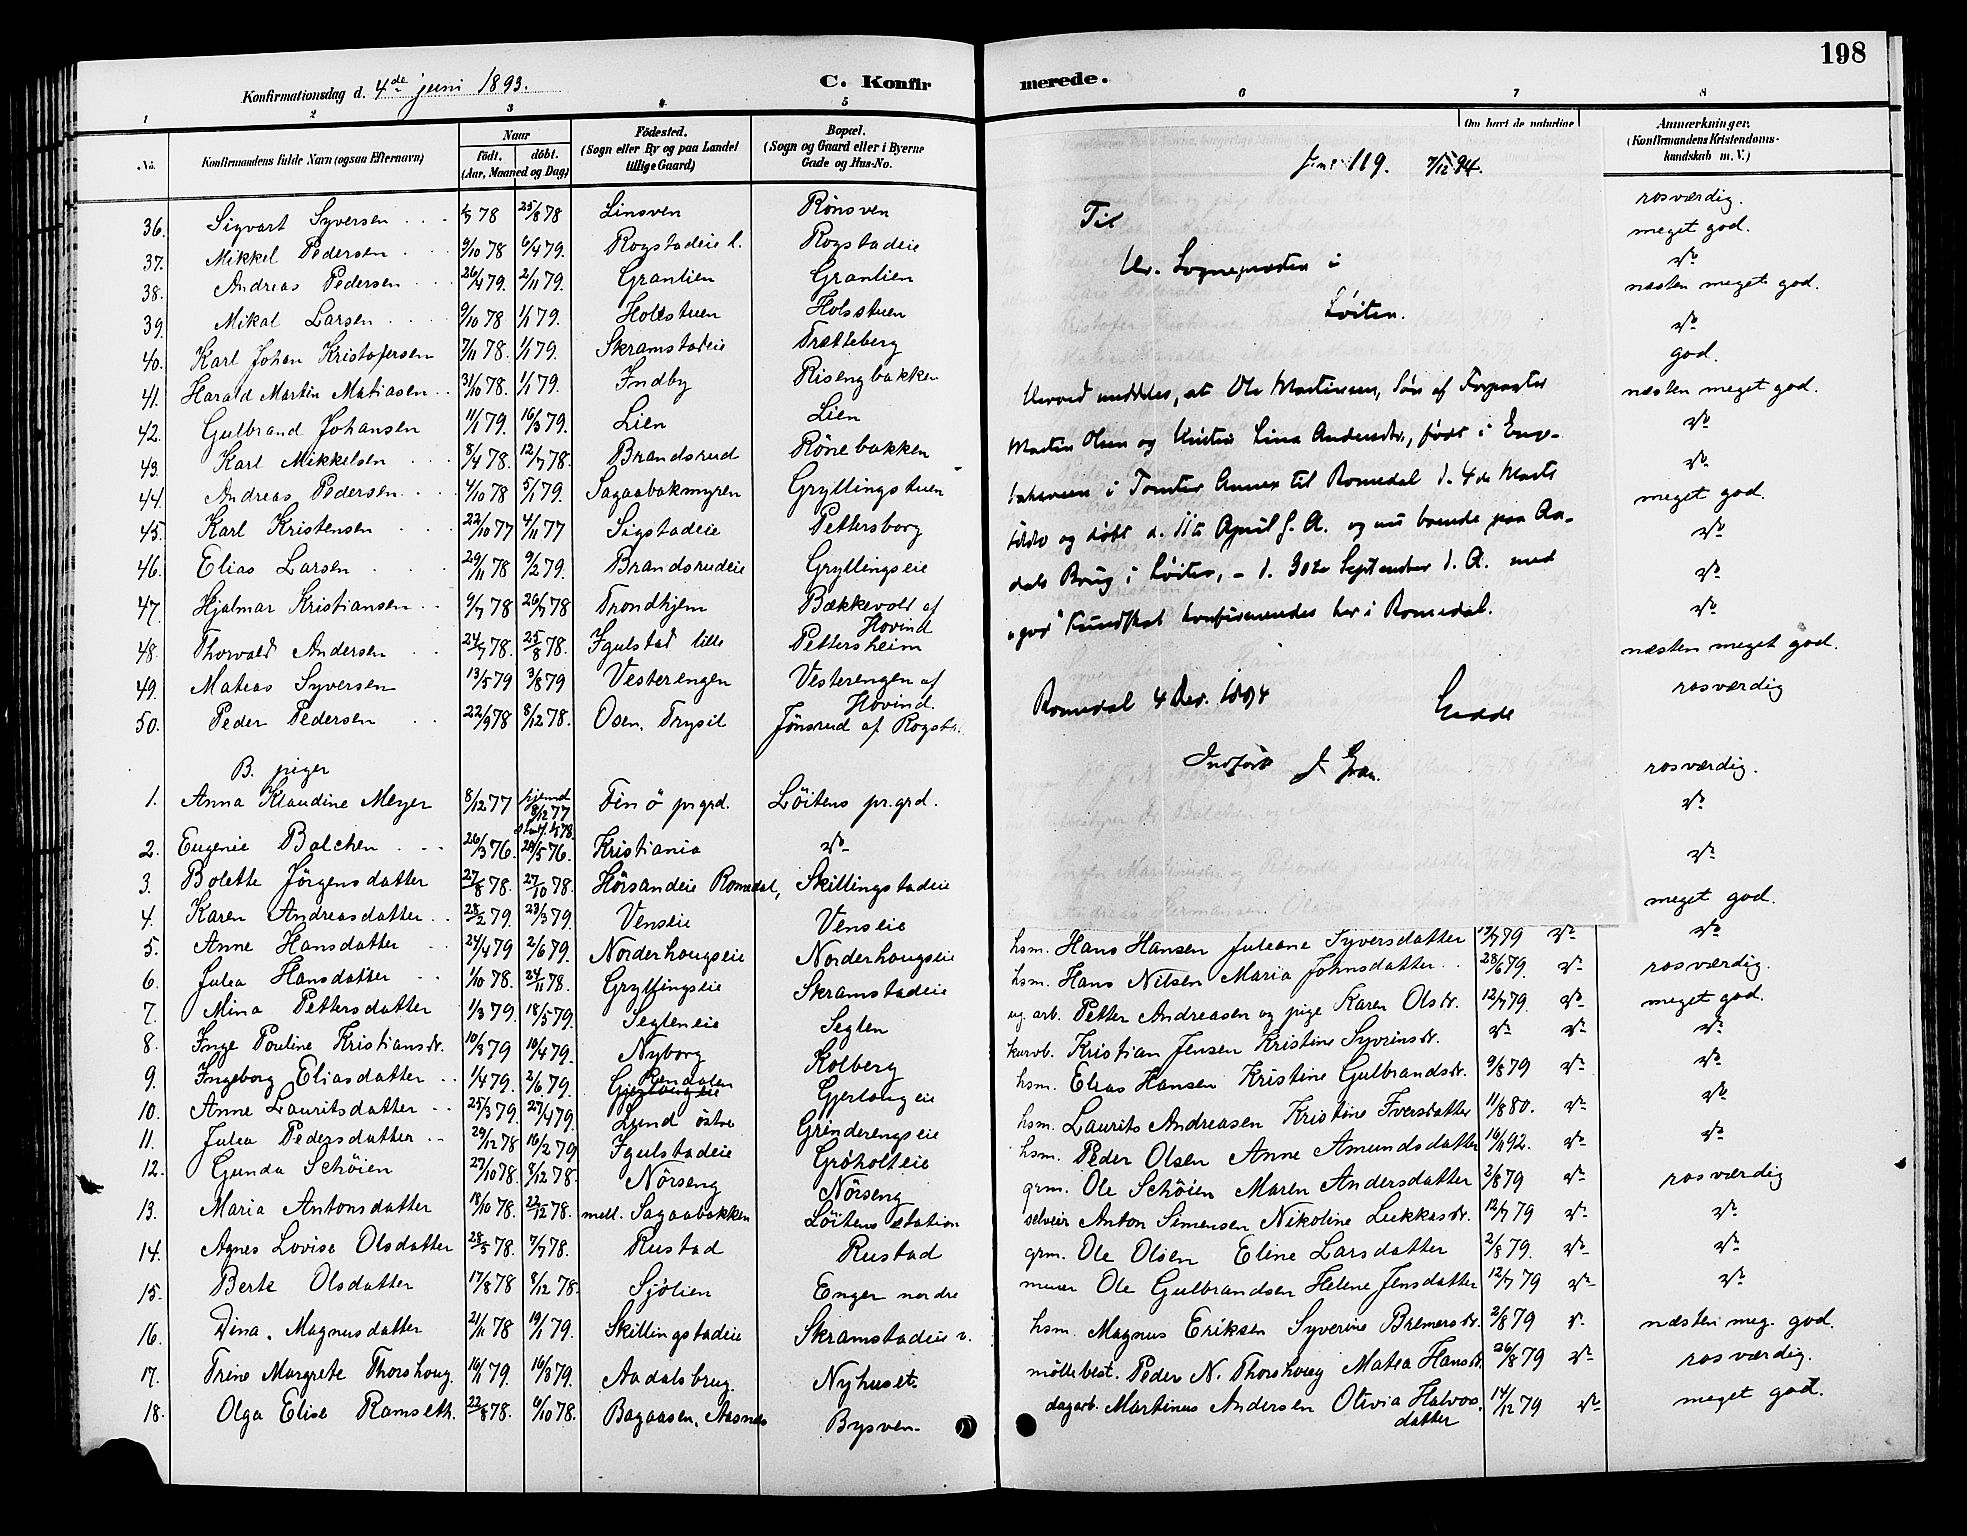 198
Konfirmationsdag d. 4de juni 1893. C. Konfirmerede.
1 2 3 4 5 6 7 8
No.
Konfirmandens fulde Navn (ogsaa Efternavn)
Naar
født. døbt.
(Aar, Maaned og Dag)
Fødested.
(Sogn eller By og paa Landet
tillige Gaard)
Bopæl.
(Sogn og Gaard eller i Byerne
Gade og Hus-No.
Om havt de naturlige
Anmærkninger.
(Konfirmandens Kristendoms-
kundskab m. V.)
36. Sigvart Syversen 78 25/8 78 Linsven Rønsven rosværdig.
37. Mikkel Pedersen 9/10 78 6/4 79. Rogstadeie l. Rogstadeie meget god.
38. Andreas Pedersen 26/4 79. 2/11 79. Granlien Granlien do
39. Mikal Larsen 9/10 78 1/1 79. Holsstuen Holsstuen næsten meget god.
40. Karl Johan Kristofersen 7/11 78. 1/1 79. Skramstadeie Trætteberg do
41. Harald Martin Matiasen 31/10 78. 1/1 79. Indby Risengbakken god.
42. Gulbrand Johansen 11/1 79. 16/3 79. Lien Lien næsten meget god.
43. Karl Mikkelsen 8/4 78. 12/7 78. Brandsrud Rønebakken do
44. Andreas Pedersen 4/10 78 5/1 79. Sagaabakmyren Gryllingstuen do
45. Karl Kristensen 22/10 77 4/11 77 Sigstadeie Pettersborg meget god.
46. Elias Larsen 29/11 78 9/2 79. Brandsrudeie Gryllingseie do
47. Hjalmar Kristiansen 9/7 78 26/7 78 Trondhjem Bækkevold af Hovind do
48. Thorvald Andersen 24/7 78. 25/8 78. Igulstad lille Pettersheim do
49. Mateas Syversen 13/5 79 3/8 79 Vesterengen Vesterengen af Hovind næsten meget god.
50. Peder Pedersen 22/9 78 8/12 78. Osen. Trysil Jønsrud af Rogst. rosværdig
B. piger
1. Anna Klaudine Meyer 8/12 77 hjemd 8/12 77 Finø prgrd. Löitens pr.grd. rosværdig.
2. Eugenie Balchen 26/3 76. 28/5 76. Kristiania do do
3. Bolette Jörgensdatter 27/8 78. 27/10 78. Hörsandeie Romedal, Skillingstadeie do
4. Karen Andreasdatter 28/2 79. 23/3 79. Venseie Venseie meget god.
5. Anne Hansdatter 24/4 79 2/6 79. Norderhougseie Norderhougseie hsm. Hans Hansen Juleane Syversdatter 13/7 79 do do
6. Julea Hansdatter 1/10 78. 24/11 78. Gryllingseie Skramstadeie hsm. Hans Nilsen Maria Johnsdatter 28/6 79. do rosværdig.
7. Mina Pettersdatter 1/3 79. 18/5 79. Segleneie Seglen ug. arb. Petter Andreasen og pige Karen Olsdr. 12/7 79. do meget god.
8. Inge Pouline Kristiansdr. 10/3 79 10/4 79. Nyborg Kolberg kurvb. Kristian Jensen Kristine Syvrinsdr. do do do
9. Ingeborg Eliasdatter 1/4 79. 2/6 79. Gjerlougeie Gjerlougeie hsm. Elias Hansen Kristine Gulbrandsdr. 9/8 79 do do
10. Anne Lauritsdatter 25/3 79. 27/4 79. Lund østre Grinderengseie hsm. Laurits Andreasen Kristine Iversdatter 11/8 80. do do
11. Julea Pedersdatter 29/12 78 16/2 79 Igulstadeie Grøholteie hsm. Peder Olsen Anne Amundsdatter 16/1 92. do do
12. Gunda Schöien 27/10 78. 8/12 78. Nörseng Nörseng grm. Ole Schöien Maren Andersdatter 2/8 79 do rosværdig
13. Maria Antonsdatter 18/10 78. 22/12 78. mell. Sagaabakken Löitens station selveier Anton Simensen Nikoline Lukkasdr. 12/7 79 do do
14. Agnes Lovise Olsdatter 28/5 78. 7/7 78. Rustad Rustad grm. Ole Olsen Eline Larsdatter 2/8 79. do do
15. Berte Olsdatter 17/8 78 8/12 78. Sjölien Enger nordre murer Ole Gulbrandsen Helene Jensdatter 12/7 79 do do
16. Dina. Magnusdatter 21/11 78 19/1 79. Skillingstadeie Skramstadeie v. hsm. Magnus Eriksen Syverine Bremersdr. 2/8 79 do næsten meg. god.
17. Trine Margrete Thorshoug. 16/1 79. 16/3 79. Aadalsbrug. Nyhuset. möllebest. Peder N. Thorshoug Matea Hansdr. 26/8 79 do rosværdig.
18. Olga Elise Ramseth. 22/8 78. 6/10 78. Bagaasen, Aasnes Bysven. dagarb. Martinus Andersen Olivia Halvorsdatter 14/12 79 do meget god.
119. 7/12 94.
Til
Hr. Sognepresten i
Løiten.
Herved meddeles, at Ole Martinsen, Søn af Forpagter
Martin Olsen og Hustru Lina Andersdtr., født i Eng-
i Tomter Annex til Romedal d. 4de Marts
og døbt d. 11te April s. A. og nu boende paa Aa-
dals Brug i Løiten, - d. 30te September d. A. med
"god" Kundskab konfirmeredes her i Romedal.
Romedal 4 Dec. 1894
Indført